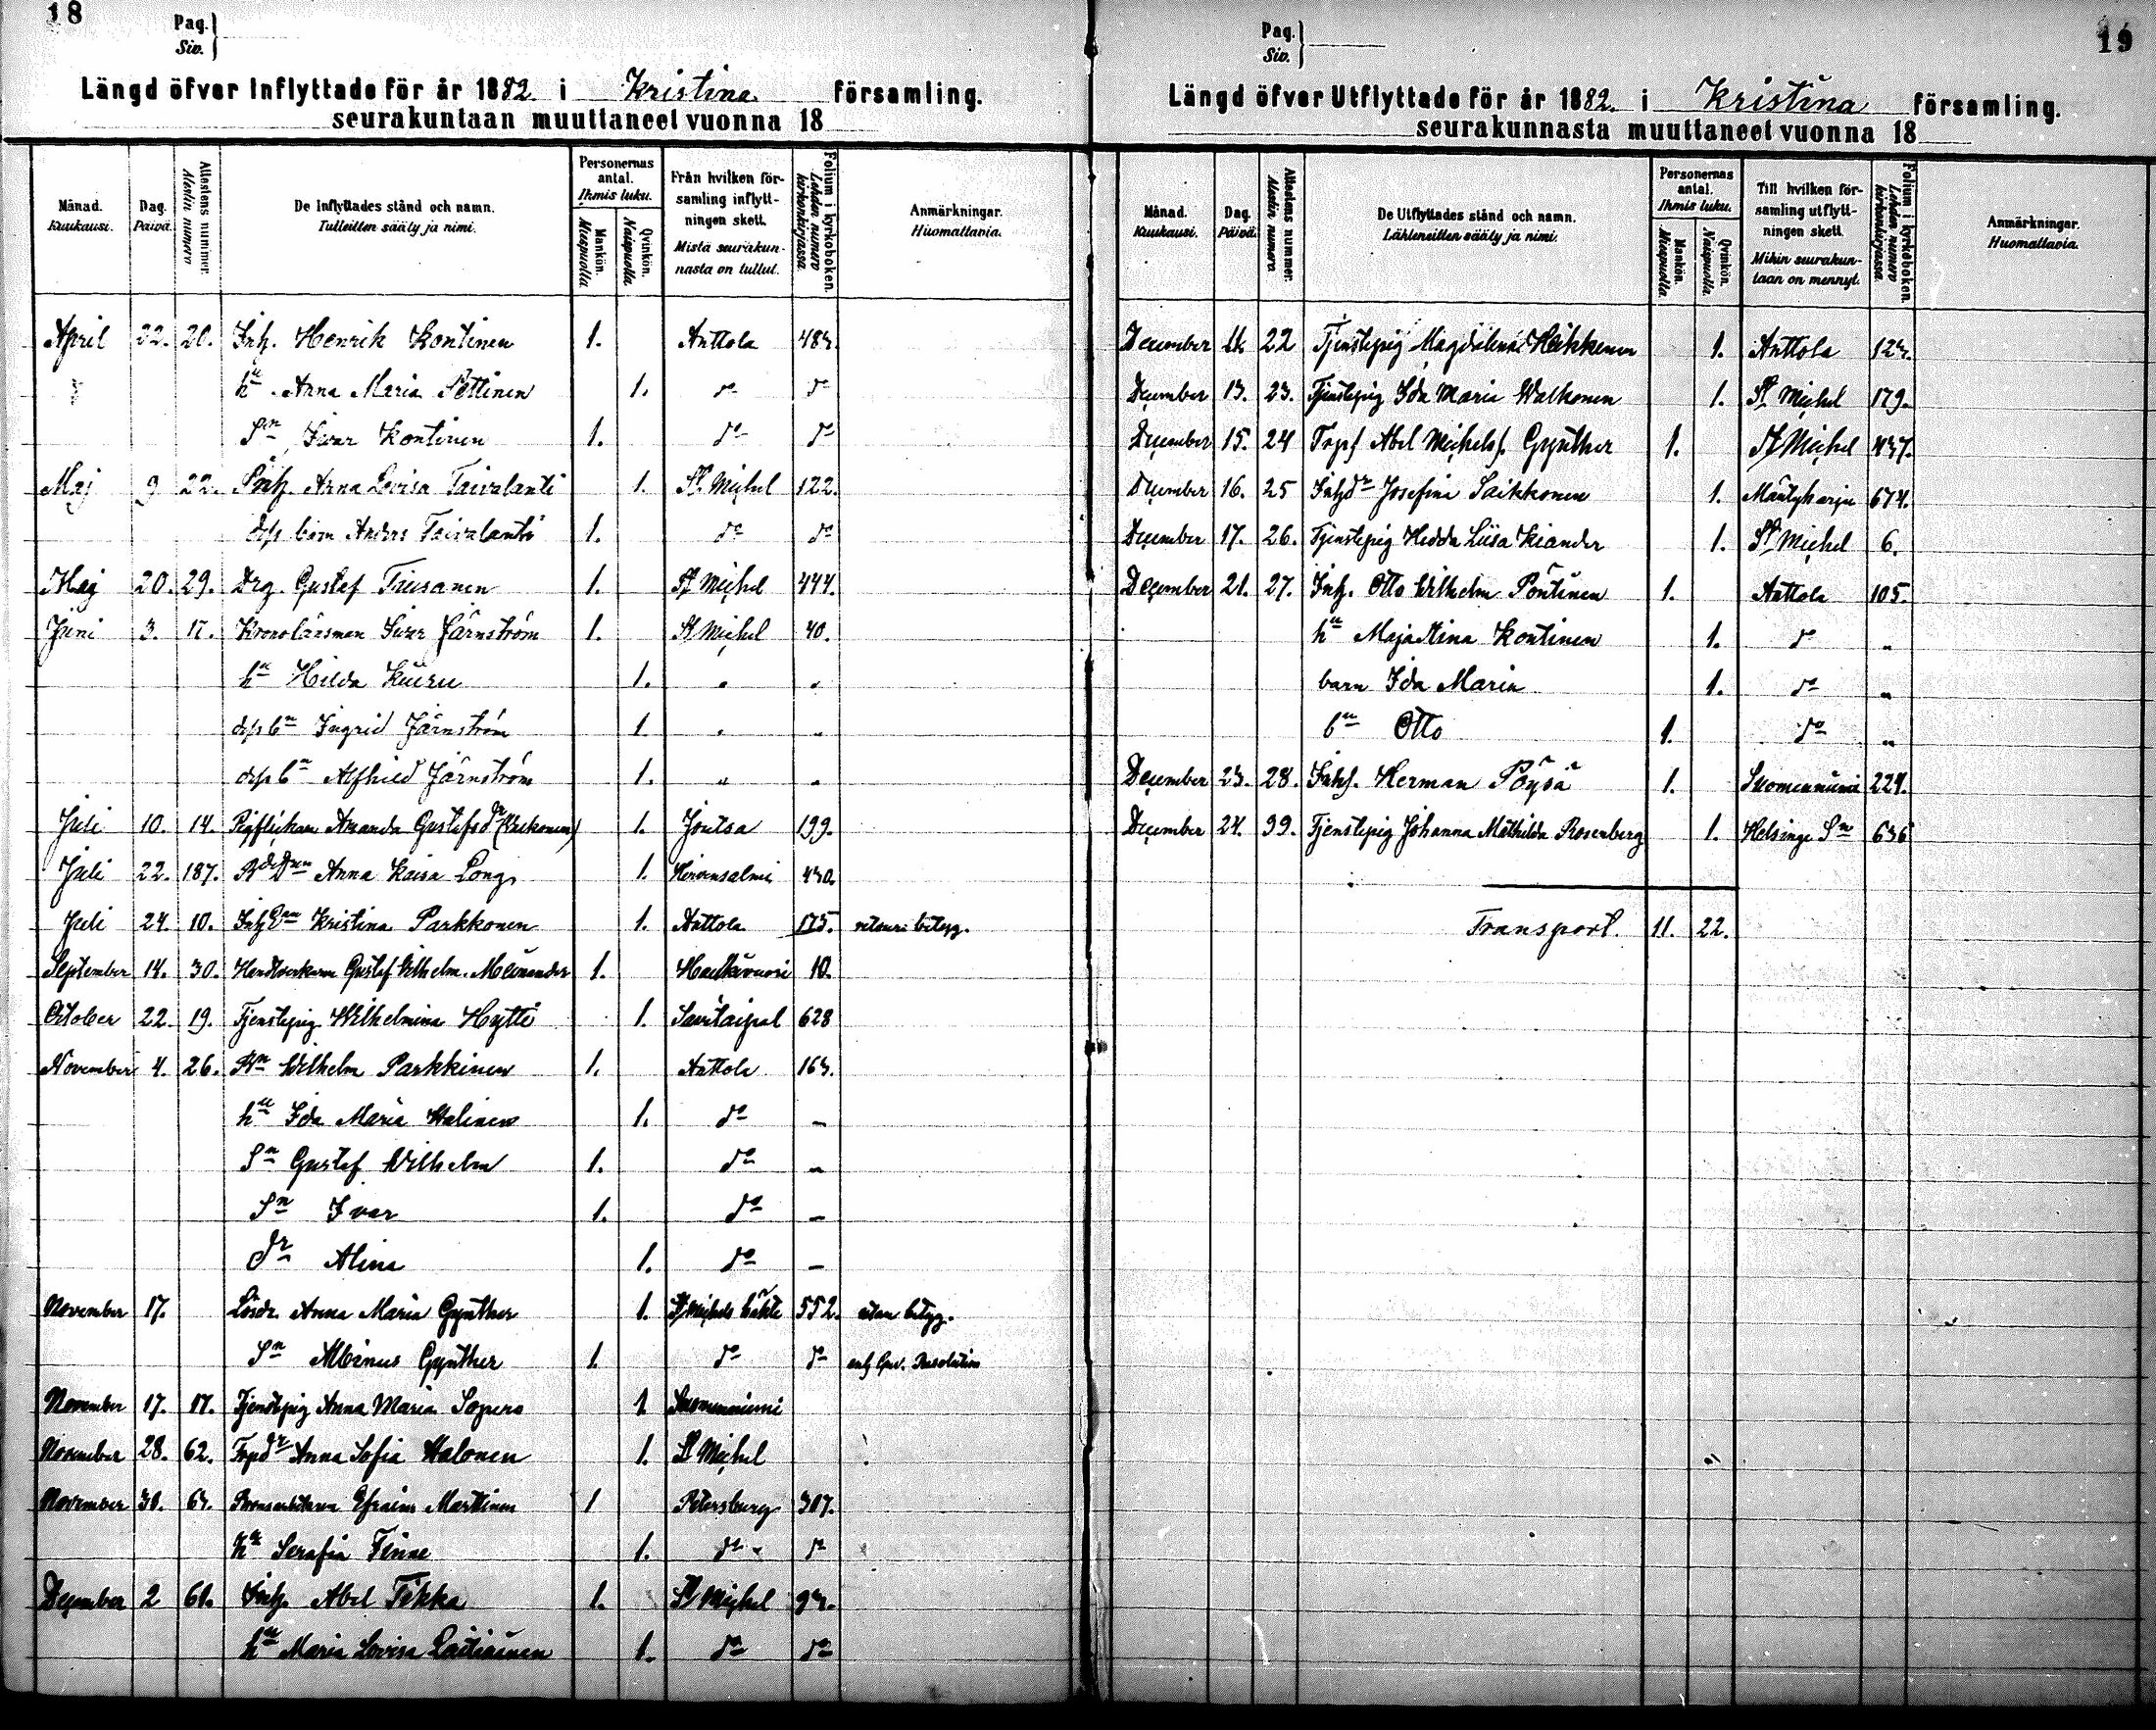 18
Pag.
Siv.
Längd öfver Inflyttade för år 1882. i Kristina församling.
seurakuntaan muuttaneet vuonna 18
Månad. Kuukausi.
Dag. Päivä.
Attestens nummer. Atestin numero
De Inflyttades stånd och namn.
Tulleitten sääty ja nimi.
Personernas antal. Ihmis luku.
Mankön. Miespuolia
Qvinkön. Naispuolia
Från hvilken församling inflyttningen skett.
Mistä seurakunnasta on tullut.
Folium i kyrkoboken. Lehden numero kirkonkirjassa.
Anmärkningar. Huomattavia.
April 22. 20. Inh. Henrik Kontinen 1. Anttola 483.
hu Anna Maria Pettinen 1. do do
Sn Ivar Kontinen 1. do do
Maj 9 22. Inh. Anna Lovisa Taivalanti 1. St Michel 122.
Anders Taivalanti 1. do do
Maj 20. 29. Drg. Gustaf Tiusanen 1. St Michel 444.
Juni 3. 17. Kronolänsman Ivar Järnström 1. St Michel 40.
hu Hilda Kiuru 1. " "
Ingrid Järnström 1. " "
Alfhild Järnström 1. " "
Juli 10. 14. Amanda Gustafsdr 1. Joutsa 199.
Juli 22. 187. Anna Kaisa Long 1. Hirvensalmi 430.
Juli 24. 10. Kristina Parkkonen 1. Anttola 175. betyg.
September 14. 30. Gustaf Wilhelm Meinander 1. Haukivuori 10.
October 22. 19. Tjenstepig Wilhelmina Hytti 1. Savitaipal 628
November 4. 26. Wilhelm Parkkinen 1. Anttola 163.
hu Ida Maria Halinen 1. do "
Sn Gustaf Wilhelm 1. do "
Sn Ivar 1. do "
dr Alina 1. do "
November 17. Anna Maria Gynther 1. St Michels häkte 552. utan betyg.
Sn Albinus Gynther 1 do do enl Guv. Resolution
November 17. 17. Tjenstepig Anna Maria 1 Suomenniemi
November 28. 62. Torpdr Anna Sofia Halonen 1. St Michel
November 30. 63. Efraim Marttinen 1 Petersburg 307.
hu Serafia Finne 1. do do
December 2 61. Inh. Abel Tikka 1. St Michel 93.
hu Maria Lovisa Laitiainen 1. do do
19
Pag.
Siv.
Längd öfver Utflyttade för år 1882. i Kristina församling.
seurakunnasta muuttaneet vuonna 18
Månad. Kuukausi.
Dag. Päivä.
Attestens nummer. Atestin numero.
De Utflyttades stånd och namn.
Lähteneitten sääty ja nimi.
Personernas antal. Ihmis luku.
Mankön. Miespuolia
Qvinkön. Naispuolia
Till hvilken församling utflyttningen skett.
Mihin seurakuntaan on mennyt.
Folium i kyrkoboken. Lehden numero kirkonkirjassa.
Anmärkningar. Huomattavia.
December 11. 22 Tjenstepig Magdalena Heikkenen 1. Anttola 123.
December 13. 23. Tjenstepig Ida Maria Walkonen 1. St Michel 179.
December 15. 24 Torps Abel Michelss. Gynther 1. St Michel 437.
December 16. 25 Inhdr Josefina Saikkonen 1. Mäntyharju 674.
December 17. 26. Tjenstepig Hedda Liisa Kiander 1. St Michel 6.
December 21. 27. Inh. Otto Wilhelm Pöntinen 1. Anttola 105.
hu Maja Stina Kontinen 1. do "
barn Ida Maria 1. do "
bn Otto 1. do "
December 23. 28. Inhs. Herman Pöysä 1. Suomenniemi 224.
December 24. 99. Tjenstepig Johanna Mathilda Rosenberg 1. Helsinge Sn 636
Transport. 11. 22.